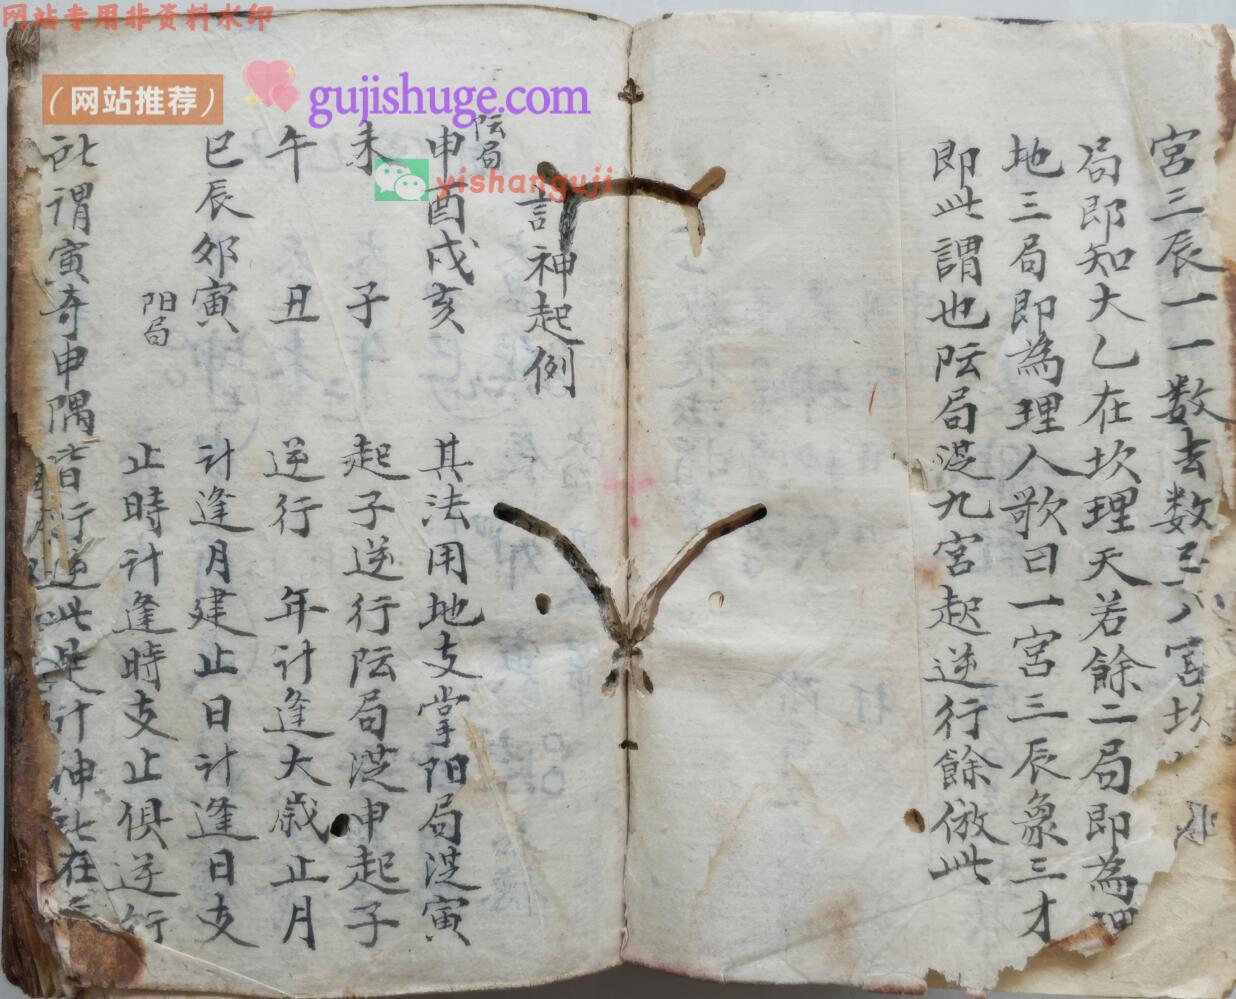 网站专用非资料水印
(网站推荐)
gujishuge.com
yishanguji
宫三辰一一数去数
局即知大乙在坎理天若餘二局即為理
地三局即為理人歌曰一宫三辰象三才
即此謂也阮局從九宫起逆行餘倣此
計神起例
阮局
申酉戌亥 其法用地支掌阳局從寅
未 子 起子逆行阮局從申起子
午 丑 逆行 年计逢大歲止月
巳辰夘寅 计逢月建止日计逢日支
阳局
止時计逢時支止俱逆行
謂寅奇申隅皆行逆此是计神